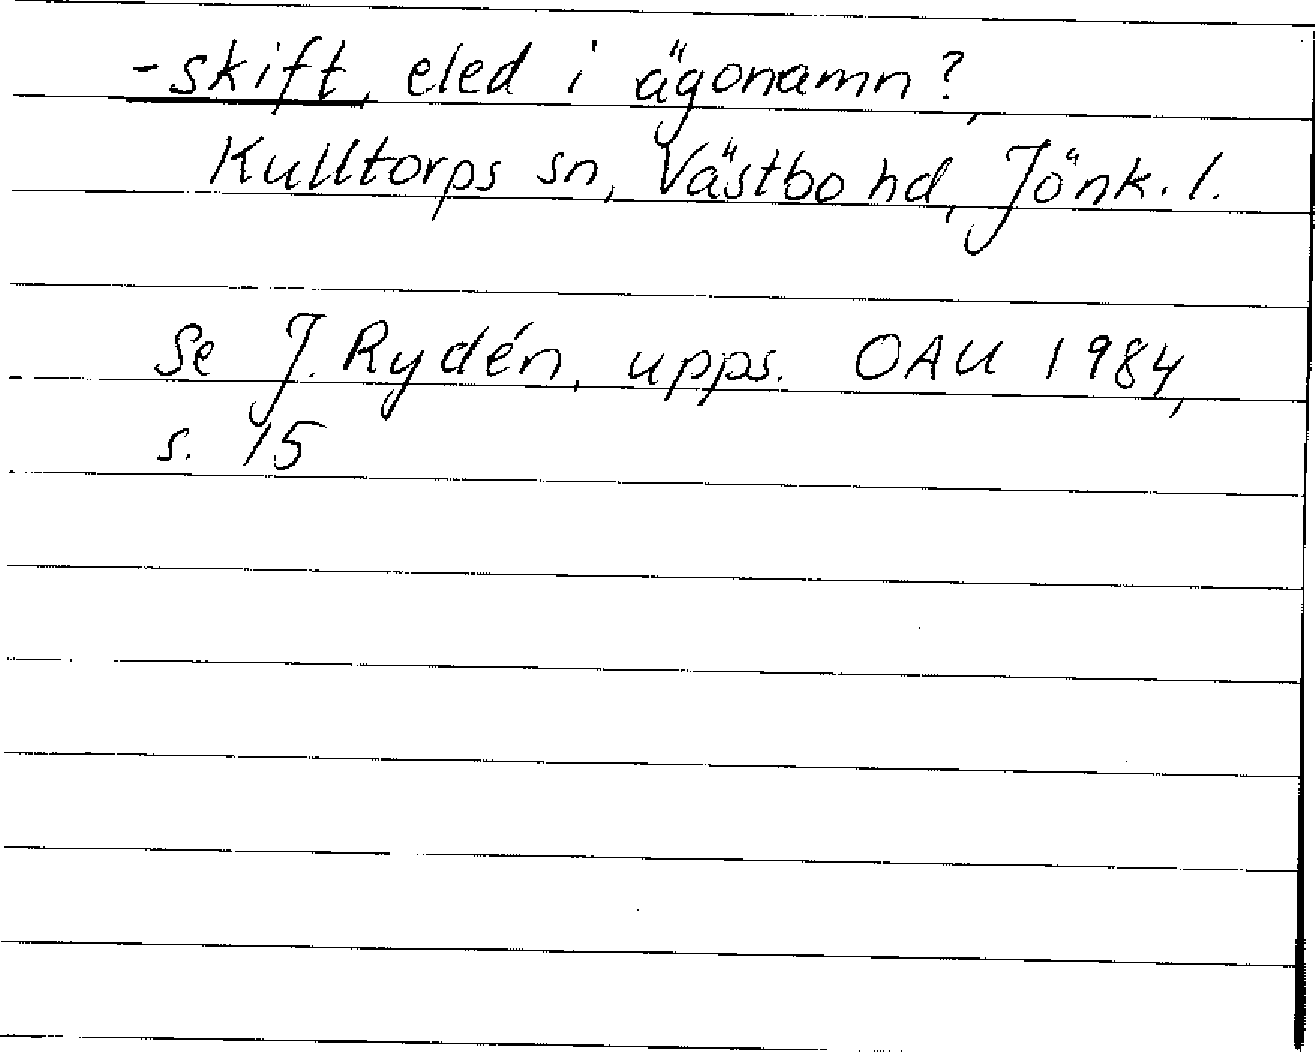 -skift, eled i ägonamn?,
Kulltorps sn, Västbo hd, Jönk. l.
Se J. Rydén, upps. OAU 1984,
s. 15